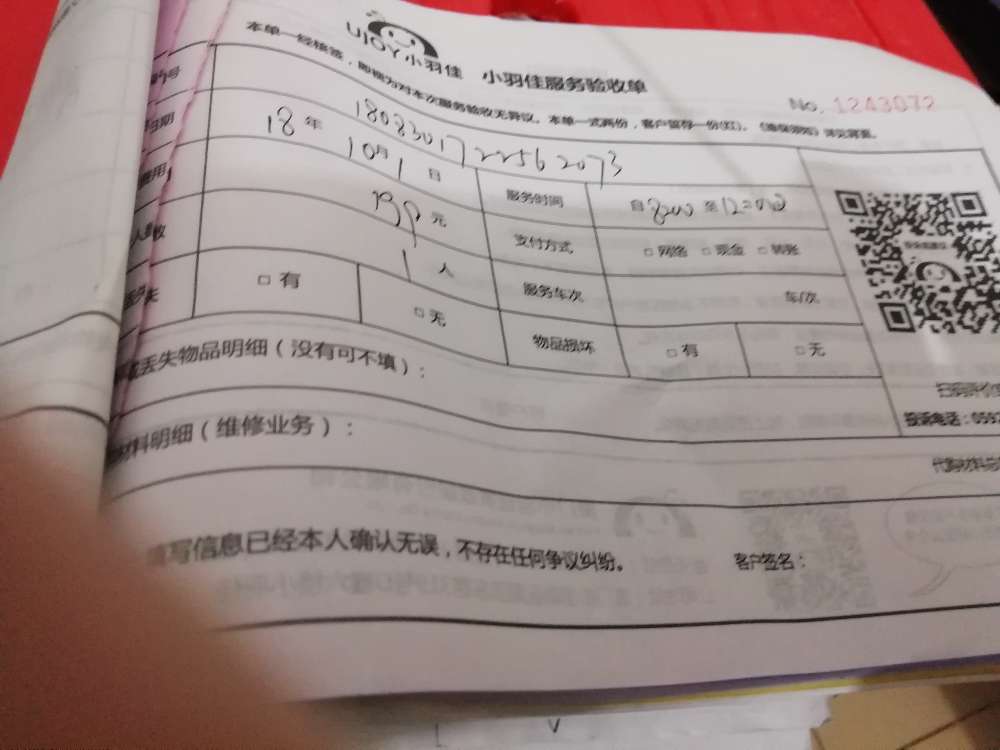 UJOY小羽佳 小羽佳服务验收单
No. 1243072
本单一经核签，即视为对本次服务验收无异议。本单一式两份，客户留存一份(红)。
号
1808301722562073
日期 18年10月1日 服务时间 自8:00至12:00
费用 元 支付方式 □网络 □现金 □转账
1人 服务车次 车/次
失 □有 □无 物品损坏 □有 □无
丢失物品明细（没有可不填）：
扫码评价
投诉电话：059
材料明细（维修业务）：
代购材料
填写信息已经本人确认无误，不存在任何争议纠纷。 客户签名：